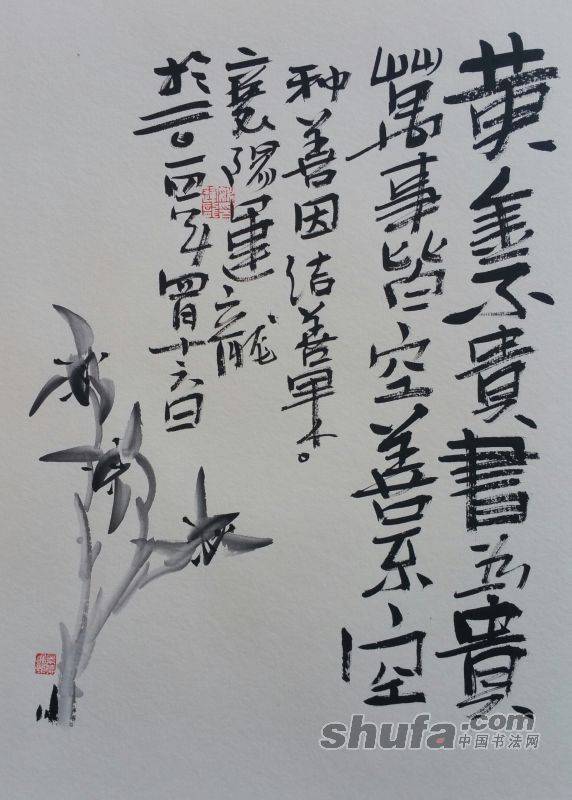 黄金不貴書为貴
萬事皆空善不空
种善因结善果。
襄陽運龍
於二〇一四年四月十六日
shufa.com
中国书法网